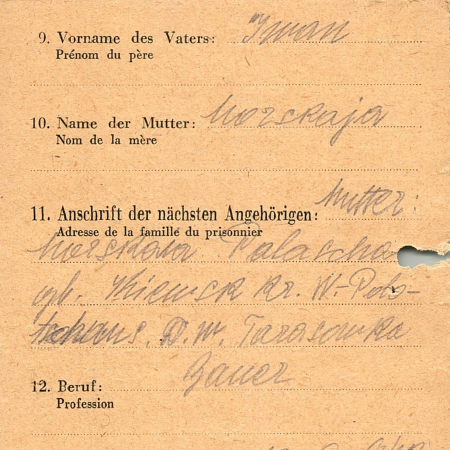 9. Vorname des Vaters: Iwan
Prénom du père
10. Name der Mutter: Morskaja
Nom de la mère
11. Anschrift der nächsten Angehörigen: Mutter:
Adresse de la famille du prisonnier
Palascha
gb. Kiewsk kr. W-Polo-
D. W. Tarasowka
12. Beruf: Bauer
Profession